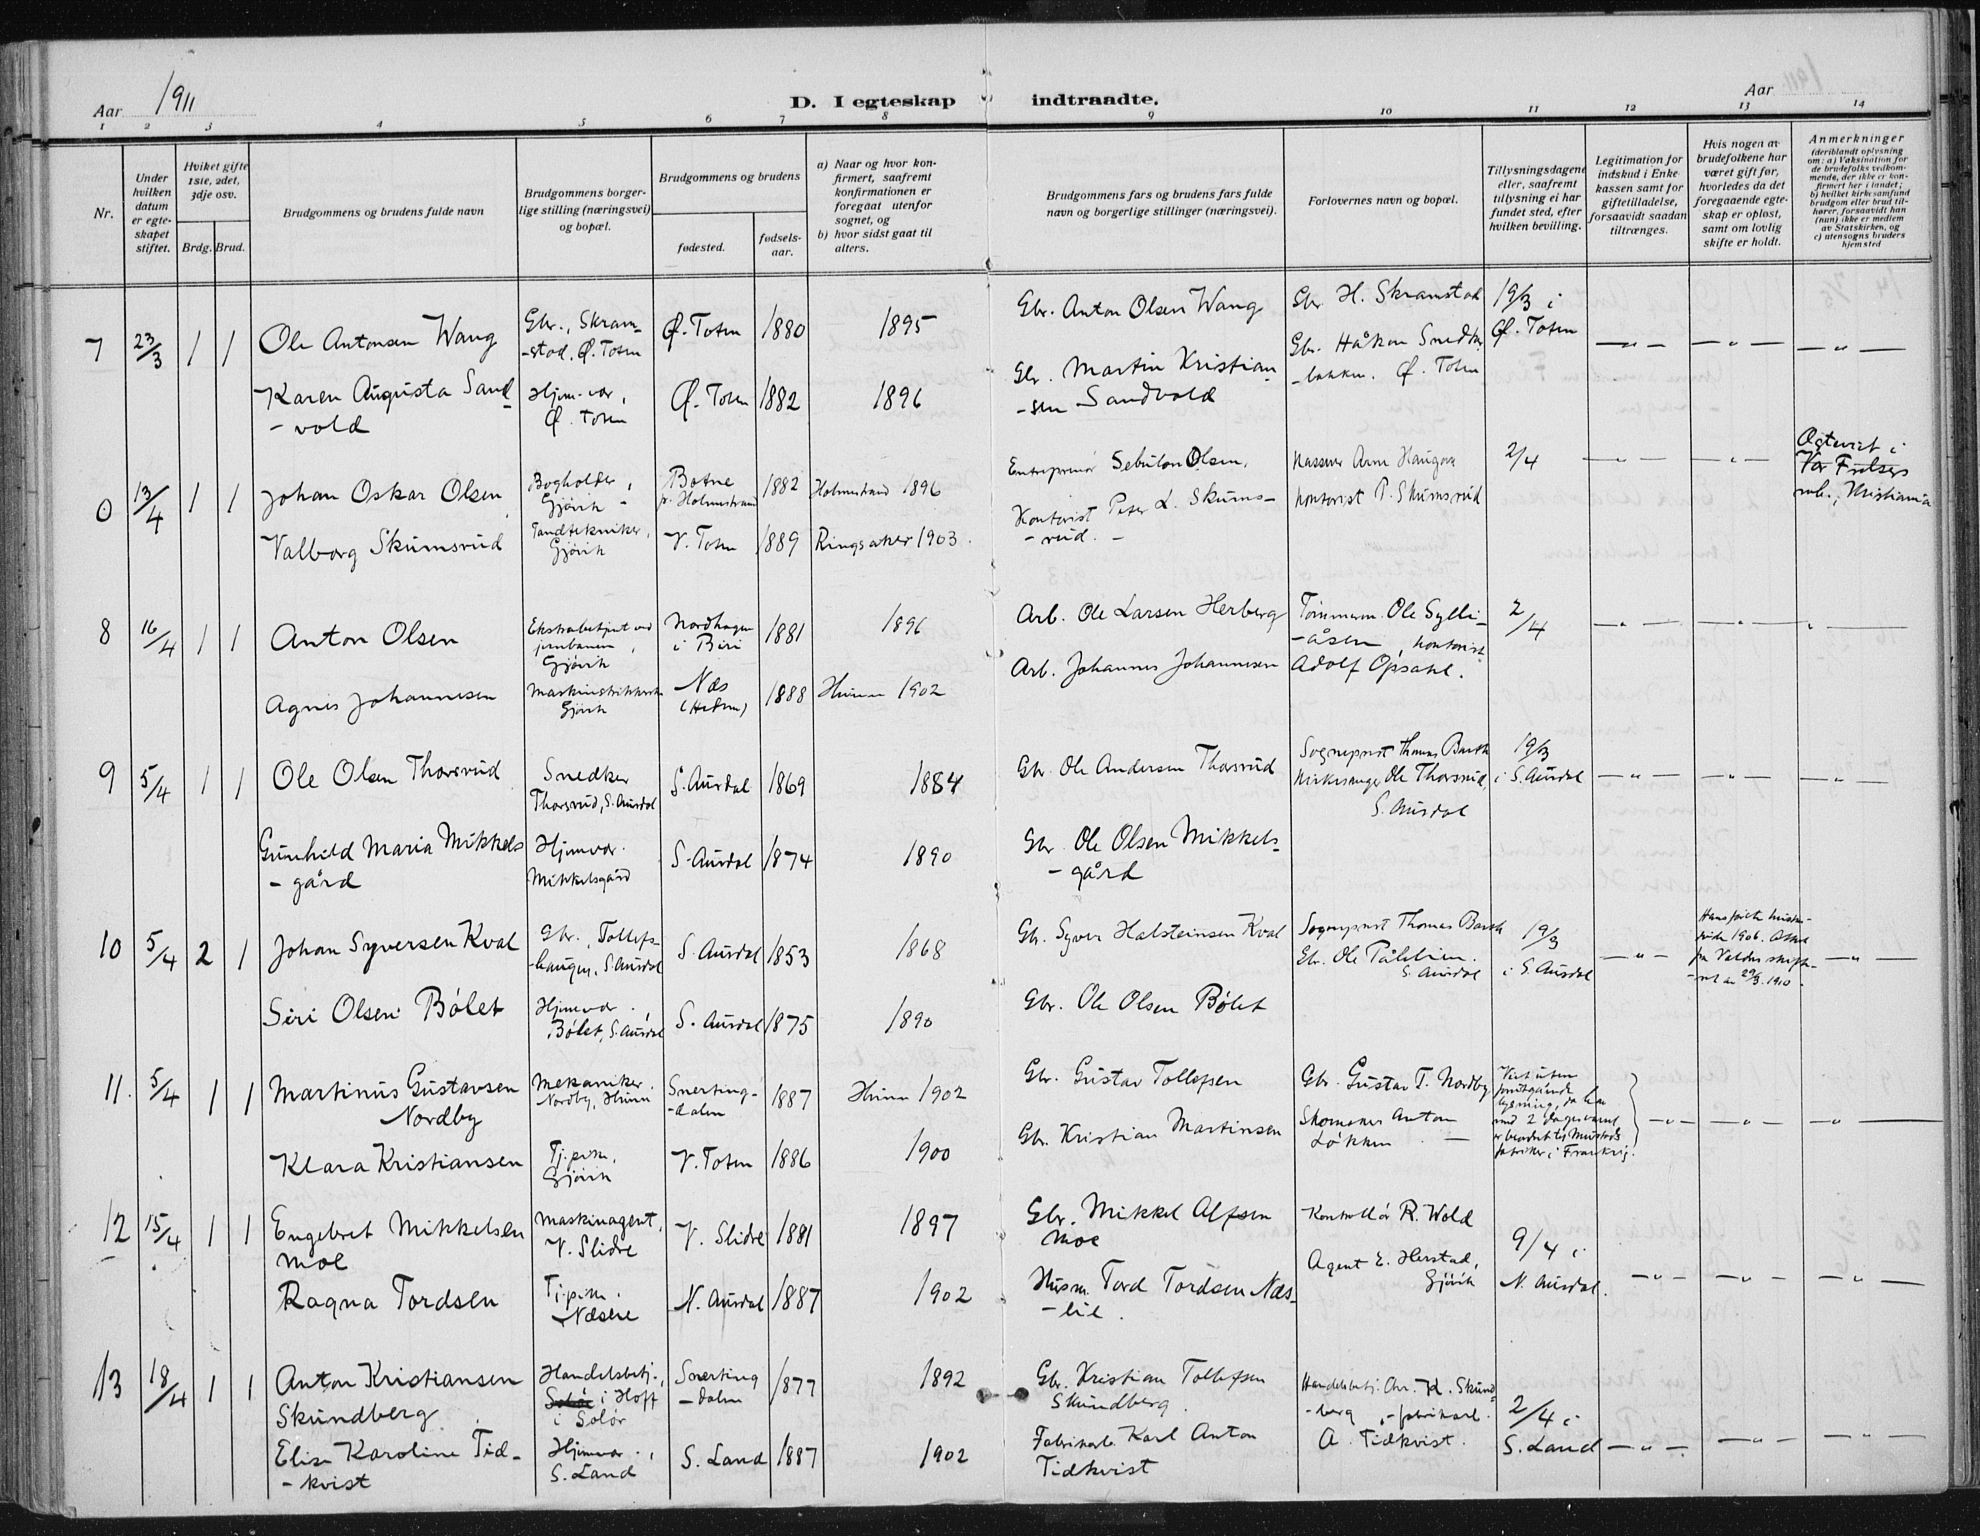 Aar 1911
D. I egteskap indtraadte.
Aar 1911
1 2 3 4 5 6 7 8 9 10 11 12 13 14
Nr.
Under hvilken datum er egteskapet stiftet.
Hvilket gifte 1ste, 2det, 3dje osv.
Brdg. Brud.
Brudgommens og brudens fulde navn
Brudgommens borgerlige stilling (næringsvei) og bopæl.
Brudgommens og brudens
fødested.
fødselsaar.
a) Naar og hvor konfirmert, saafremt konfirmationen er foregaat utenfor sognet, og
b) hvor sidst gaat til alters.
Brudgommens fars og brudens fars fulde navn og borgerlige stillinger (næringsvei).
Forlovernes navn og bopæl.
Tillysningsdagene eller, saafremt tillysning ei har fundet sted, efter hvilken bevilling.
Legitimation for indskud i Enkekassen samt for giftetilladelse, forsaavidt saadan tiltrænges.
Hvis nogen av brudefolkene har været gift før, hvorledes da det foregaaende egteskap er opløst, samt om lovlig skifte er holdt.
Anmerkninger
(deriblandt oplysning om: a) Vaksination for de brudefolks vedkommende, der ikke er konfirmert her i landet; b) hvilket kirkesamfund brudgom eller brud tilhører, forsaavidt han (hun) ikke er medlem av Statskirken, og c) utensogns bruders hjemsted
7 23/3 1 1 Ole Antonsen Wang
Gbr., Skram-
-stad, Ø. Toten
Ø. Toten 1880 1895
Gbr. Anton Olsen Wang
Gbr. H. Skramstad
19/3 i
Ø. Toten
Gbr. Håkon Snedker
-bakken. Ø. Toten
— " — — " — — " —
Karen Augusta Sand-
- vold
Hjem. vær,
Ø. Toten
Ø. Toten 1882 1896
Gbr. Martin Kristian-
-sen Sandvold
0 13/4 1 1 Johan Oskar Olsen
Bogholder,
Gjøvik -
Botne
p. Holmestrand
1882 Holmestrand 1896
Entreprenør Sebulon Olsen,
Kasserer Arne Haugom
2/4
— " — — " —
Ægteviet i
Vor Frelsers
Kristiania
Valborg Skumsrud
Tandtekniker,
Gjøvik
V. Toten 1889 Ringsaker 1903.
Kontorist Peter L. Skums-
- rud. -
Kontorist P. Skumsrud
8 16/4 1 1 Anton Olsen
Ekstrabetjent ved
jernbanen,
Gjøvik
Nordhagen
i Biri
1881 1896
Arb. Ole Larsen Herberg
Tømmerm. Ole Sylli-
-åsen, kontorist
Adolf Opsahl.
2/4
— " — — " — "
Agnes Johannesen
Maskinstrikkerske
Gjøvik
Næs
(Hedm)
1888 Hunn 1902
Arb. Johannes Johannesen
9 5/4 1 1 Ole Olsen Thorsrud
Snedker
Thorsrud, S. Aurdal
S. Aurdal 1869 1884
Gbr. Ole Andersen Thorsrud
Sogneprest Thomas Barth
Kirkesanger Ole Thorsrud,
S. Aurdal
19/3
i S. Aurdal
— " — — " — — " —
Gunhild Maria Mikkels
- gård
Hjemvær.
Mikkelsgård
S. Aurdal 1874 1890
Gbr. Ole Olsen Mikkels-
- gård
10 5/4 2 1 Johan Syversen Kval
Gbr., Tollefs-
-haugen, S. Aurdal
S. Aurdal 1853 1868
Gbr. Syver Halsteinsen Kval
Sogneprest Thomas Barth
Gbr. Ole Pålslien.
S. Aurdal
19/3
i S. Aurdal
— " —
Hans første hustru
døde 1906. Attest
fra Valdres skifte-
-ret av 29/3 1910.
— " —
Siri Olsen Bølet
Hjemvær.
Bølet, S. Aurdal
S. Aurdal 1875 1890
Gbr. Ole Olsen Bølet
11. 5/4 1 1 Martinus Gustavsen
Nordby
Mekaniker.
Nordby, Hunn
Snerting-
-dalen
1887 Hunn 1902
Gbr. Gustav Tollefsen
Gbr. Gustav T. Nordby
Viet uten
forutgående
lysning, da han
med 2 dages varsel
er beordret til Mustads
fabrikker i Frankrig.
— " — — " — " —
Klara Kristiansen
Tj.pike,
Gjøvik
V. Toten 1886 1900
Gbr. Kristian Martinsen
Skomaker Anton
Løkken —
12 15/4 1 1 Engebret Mikkelsen
Moe
Maskinagent,
V. Slidre
V. Slidre 1881 1897
Gbr. Mikkel Alfsen
Moe
Kontrollør R. Wold
9/4 i
N. Aurdal.
— " — — " — " —
Ragna Tordsen
Tj.pike.
Næsene
N. Aurdal 1887 1902
Husm. Tord Tordsen Næs-
- lie.
Agent E. Herstad,
Gjøvik
13 18/4 1 1 Anton Kristiansen
Skundberg
Handelsbetj.,
Solør i Hoff
i Solør
Snerting
- dalen
1877 1892
Gbr. Kristian Tollefsen
Skundberg.
Handelsbetj. Chr. K. Skund
-berg, fabrikarb.
A. Tidkvist.
2/4 i
S. Land
— " — — " — — " —
Elise Karoline Tid-
- kvist
Hjemvær.,
S. Land
S. Land 1887 1902
Fabrikarb. Karl Anton
Tidkvist